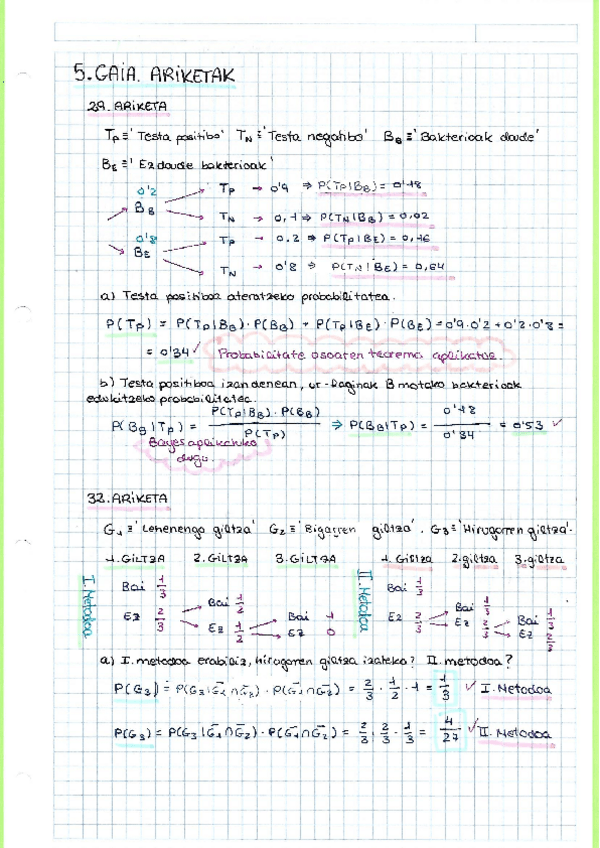 5. GAIA. ARIKETAK
29. ARIKETA
T_P ≡ 'Testa positibo' T_N ≡ 'Testa negatibo' B_B ≡ 'Bakterioak daude'
B_E ≡ 'Ez daude bakterioak'
0'2
B_B
T_P → 0'9 ⇒ P(T_P|B_B) = 0'18
T_N → 0,1 ⇒ P(T_N|B_B) = 0,02
0'8
B_E
T_P → 0.2 ⇒ P(T_P|B_E) = 0,16
T_N → 0'8 ⇒ P(T_N|B_E) = 0,64
a) Testa positiboa ateratzeko probabilitatea.
P(T_P) = P(T_P|B_B)·P(B_B) + P(T_P|B_E)·P(B_E) = 0'9·0'2 + 0'2·0'8 =
= 0'34 ✓ Probabilitate osoaren teorema aplikatuz.
b) Testa positiboa izan denean, ur-laginak B motako bakterioak
edukitzeko probabilitatea.
P(B_B|T_P) = P(T_P|B_B)·P(B_B) / P(T_P) ⇒ P(B_B|T_P) = 0'18 / 0'34 = 0'53 ✓
Bayes aplikatuko
dugu.
32. ARIKETA
G_1 ≡ 'Lehenengo giltza' G_2 ≡ 'Bigarren giltza'. G_3 ≡ 'Hirugarren giltza'.
1. GILTZA 2. GILTZA 3. GILTZA
I. Metodoa
Bai 1/3
Ez 2/3
Bai 1/2
Ez 1/2
Bai 1
Ez 0
1. Giltza 2. giltza 3. giltza
II. Metodoa
Bai 1/3
Ez 2/3
Bai 1/3
Ez 2/3
Bai 1/3
Ez 2/3
a) I. metodoa erabiliz, hirugarren giltza izateko? II. metodoa?
P(G_3) = P(G_3|G̅_1∩G̅_2)·P(G̅_1∩G̅_2) = 2/3 · 1/2 · 1 = 1/3 ✓ I. Metodoa
P(G_3) = P(G_3|G̅_1∩G̅_2)·P(G̅_1∩G̅_2) = 2/3 · 2/3 · 1/3 = 4/27 ✓ II. Metodoa